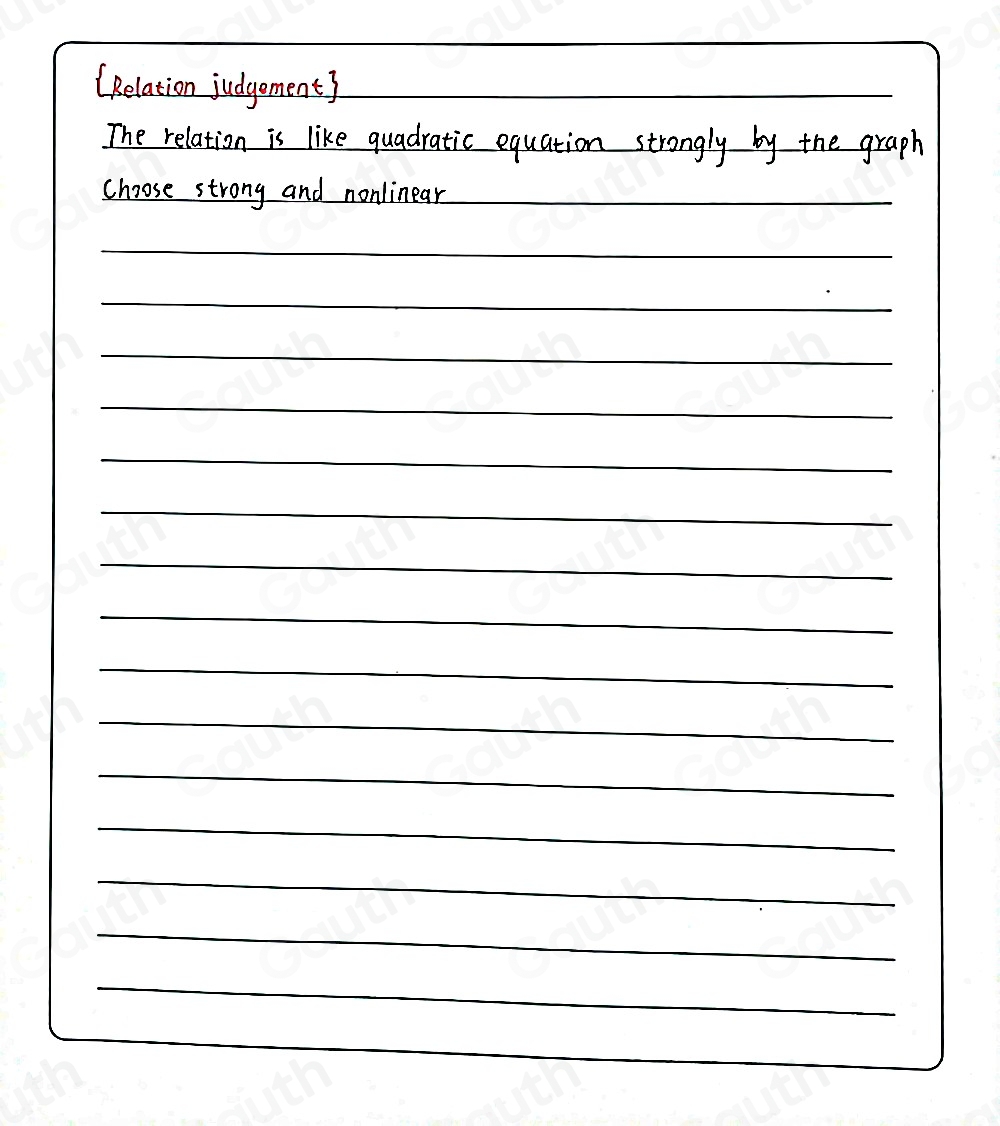 {Relation judgement}
The relation is like quadratic equation strongly by the graph
Choose strong and nonlinear